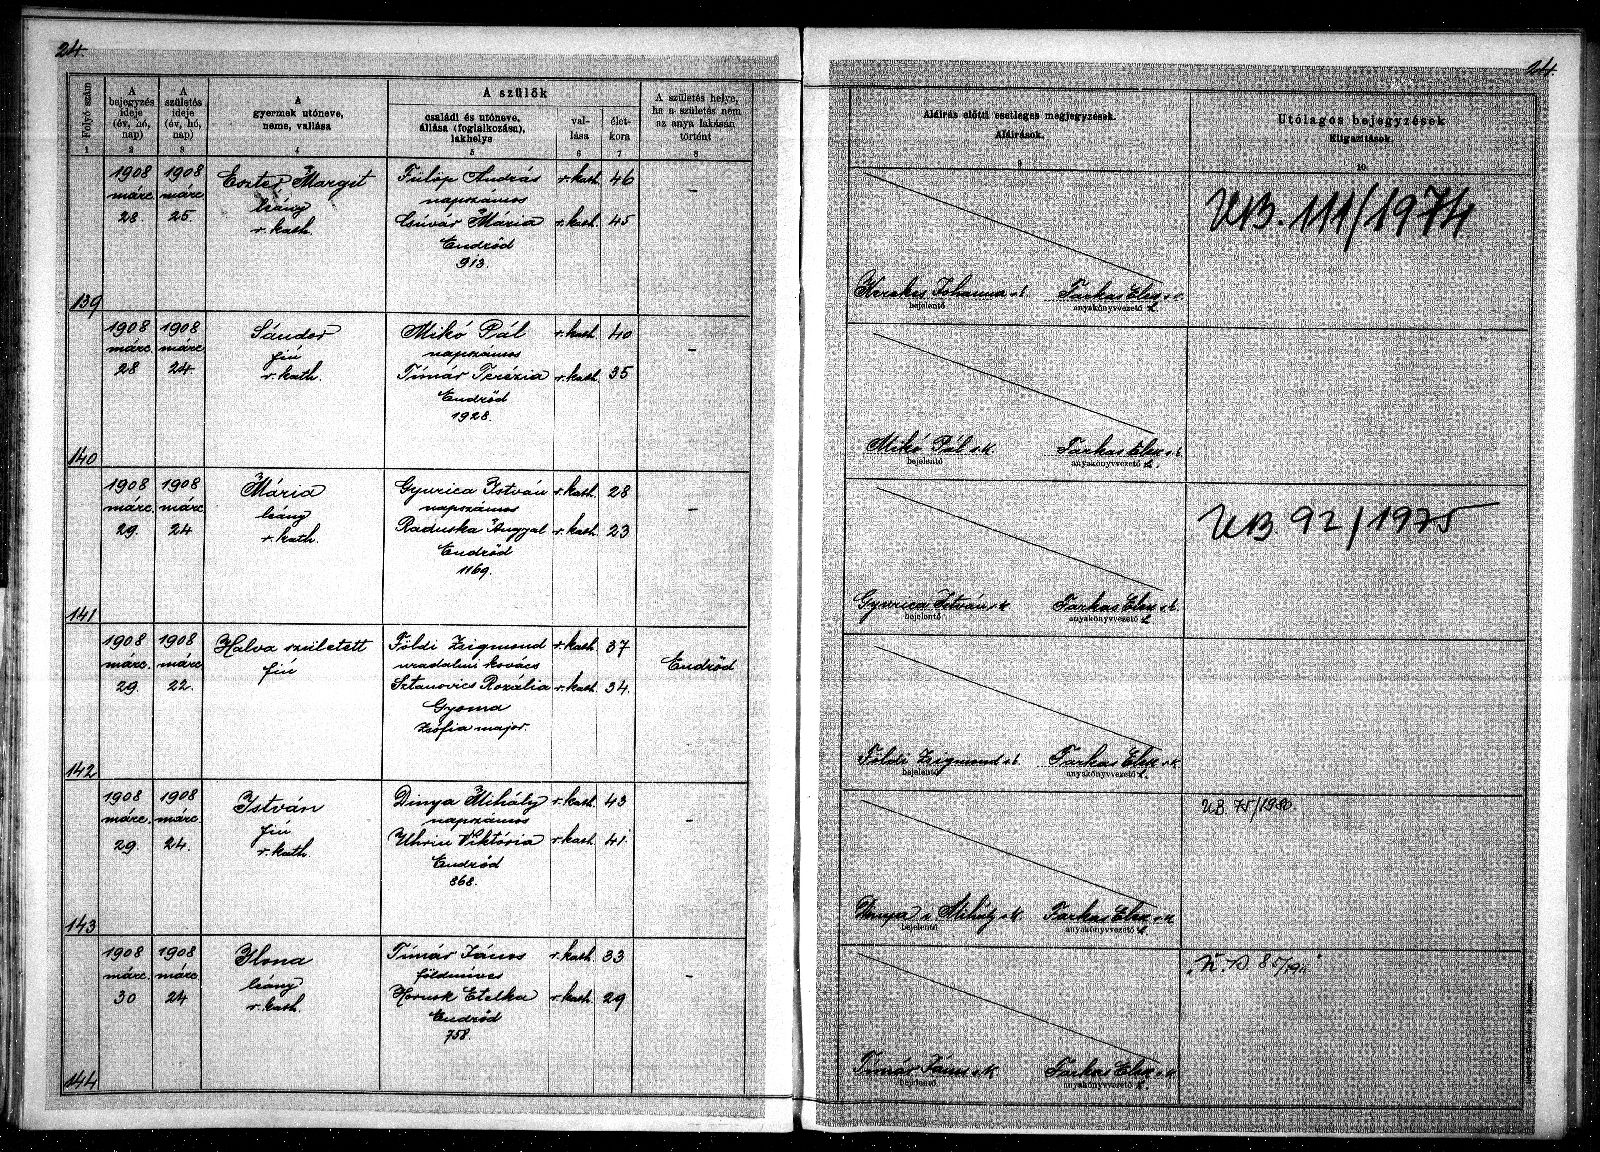 24.
24.
Folyó szám
A bejegyzés ideje (év, hó, nap)
A születés ideje (év, hó, nap)
A gyermek utóneve, neme, vallása
A szülők
családi és utóneve, állása (foglalkozása), lakhelye
vallása
életkora
A születés helye, ha a születés nem az anya lakásán történt
Aláírás előtti esetleges megjegyzések. Aláírások.
Utólagos bejegyzések Kiigazítások.
1 2 3 4 5 6 7 8 9 10
139
1908 márc. 28.
1908 márc. 25
Eszter Margit
leány
r. kath.
Fülöp András r. kath. 46
napszámos
Csúvár Mária r. kath. 45
Endrőd
913.
-
Farkas Elek s.k.
bejelentő
anyakönyvvezető
UB. 111/1974
140
1908 márc. 28
1908 márc. 24.
Sándor
fiú
r. kath.
Mikó Pál r. kath. 40
napszámos
Tímár Terézia r. kath. 35
Endrőd
1928.
-
Mikó Pál s.k.
Farkas Elek s.k.
bejelentő
anyakönyvvezető
141
1908 márc. 29.
1908 márc. 24
Mária
leány
r. kath.
Gyurica István r. kath. 28
napszámos
Raduska Angyal r. kath. 23
Endrőd
1169.
-
Gyurica István s.k.
Farkas Elek s.k.
bejelentő
anyakönyvvezető
UB. 92/1975
142
1908 márc. 29.
1908 márc. 22.
Halva született
fiú
Földi Zsigmond r. kath. 37
uradalmi kovács
Sztanovics Rozália r. kath. 34.
Gyoma
Zsófia major.
Endrőd
Földi Zsigmond s.k.
Farkas Elek s.k.
bejelentő
anyakönyvvezető
143
1908 márc. 29.
1908 márc. 24.
István
fiú
r. kath.
Dinya Mihály r. kath. 43
napszámos
Uhrin Viktória r. kath. 41
Endrőd
868.
-
Dinya Mihály s.k.
Farkas Elek s.k.
bejelentő
anyakönyvvezető
UB. 75/1980.
144
1908 márc. 30
1908 márc. 24
Ilona
leány
r. kath.
Tímár János r. kath. 33
földmíves
Hornok Etelka r. kath. 29
Endrőd
758.
-
Tímár János s.k.
Farkas Elek s.k.
bejelentő
anyakönyvvezető